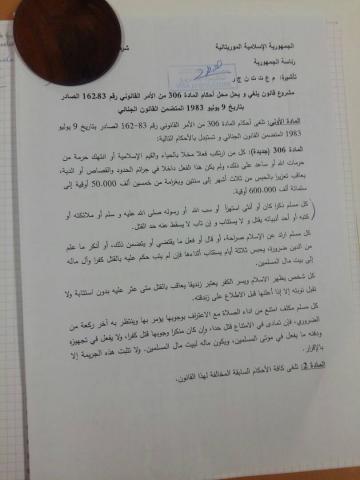 الجمهورية الإسلامية الموريتانية
شر
رئاسة الجمهورية
تأشيرة: م ع ت ت ن ج ر
مشروع قانون يلغي و يحل محل أحكام المادة 306 من الأمر القانوني رقم 162.83 الصادر
بتاريخ 9 يوليو 1983 المتضمن القانون الجنائي
المادة الأولى: تلغى أحكام المادة 306 من الأمر القانوني رقم 83-162 الصادر بتاريخ 9 يوليو
1983 المتضمن القانون الجنائي و تستبدل بالأحكام التالية:
المادة 306 (جديدة): كل من ارتكب فعلا مخلا بالحياء والقيم الإسلامية أو انتهك حرمة من
حرمات الله أو ساعد على ذلك، ولم يكن هذا الفعل داخلا في جرائم الحدود والقصاص أو الدية،
يعاقب تعزيرا بالحبس من ثلاث أشهر إلى سنتين وبغرامة من خمسين ألف 50.000 أوقية إلى
ستمائة ألف 600.000 أوقية.
كل مسلم ذكرا كان أو أنثى استهزأ أو سب الله أو رسوله صلى الله عليه و سلم أو ملائكته أو
كتبه أو أحد أنبيائه يقتل و لا يستتاب و إن تاب لا يسقط عنه حد القتل.
كل مسلم ارتد عن الإسلام صراحة، أو قال أو فعل ما يقتضي أو يتضمن ذلك، أو أنكر ما علم
من الدين ضرورة، يحبس ثلاثة أيام يستتاب أثناءها فإن لم يتب حكم عليه بالقتل كفرا وآل ماله
إلى بيت مال المسلمين.
كل شخص يظهر الاسلام ويسر الكفر يعتبر زنديقا يعاقب بالقتل متى عثر عليه بدون استتابة ولا
تقبل توبته إلا إذا أعلنها قبل الاطلاع على زندقته.
كل مسلم مكلف امتنع من اداء الصلاة مع الاعتراف بوجوبها يؤمر بها وينتظر به آخر ركعة من
الضروري، فإن تمادى في الامتناع قتل حدا، وإن كان منكرا وجوبها قتل كفرا، ولا يفعل في تجهيزه
ودفنه ما يفعل في موتى المسلمين، ويكون ماله لبيت مال المسلمين. ولا تثبت هذه الجريمة إلا
بالإقرار.
المادة 2: تلغى كافة الأحكام السابقة المخالفة لهذا القانون.